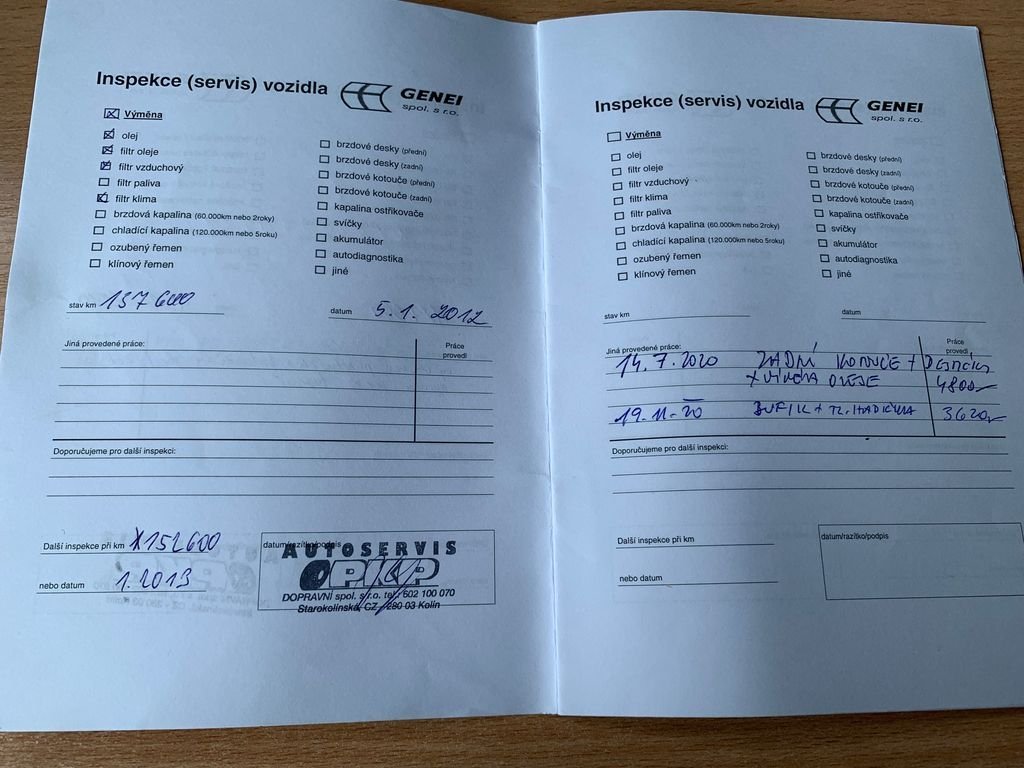 Inspekce (servis) vozidla GENEI
spol. s r.o.
Výměna
olej
filtr oleje
filtr vzduchový
filtr paliva
filtr klima
brzdová kapalina (60.000km nebo 2roky)
chladící kapalina (120.000km nebo 5roku)
ozubený řemen
klínový řemen
brzdové desky (přední)
brzdové desky (zadní)
brzdové kotouče (přední)
brzdové kotouče (zadní)
kapalina ostřikovače
svíčky
akumulátor
autodiagnostika
jiné
stav km 137600
datum 5.1.2012
Jiná provedené práce:
Práce
provedl
Doporučujeme pro další inspekci:
Další inspekce při km 152600
nebo datum 1.2013
datum/razítko/podpis
AUTOSERVIS
DOPRAVNÍ spol. s r.o. tel.: 602 100 070
Starokolínská, CZ - 280 03 Kolín
Inspekce (servis) vozidla GENEI
spol. s r.o.
Výměna
olej
filtr oleje
filtr vzduchový
filtr klima
filtr paliva
brzdová kapalina (60.000km nebo 2roky)
chladící kapalina (120.000km nebo 5roku)
ozubený řemen
klínový řemen
brzdové desky (přední)
brzdové desky (zadní)
brzdové kotouče (přední)
brzdové kotouče (zadní)
kapalina ostřikovače
svíčky
akumulátor
autodiagnostika
jiné
stav km
datum
Jiná provedené práce:
Práce
provedl
14.7.2020 ZADNÍ KOTOUČE + DESTIČKY
+ VÝMĚNA OLEJE 4800,-
19.11.20 3620,-
Doporučujeme pro další inspekci:
Další inspekce při km
nebo datum
datum/razítko/podpis